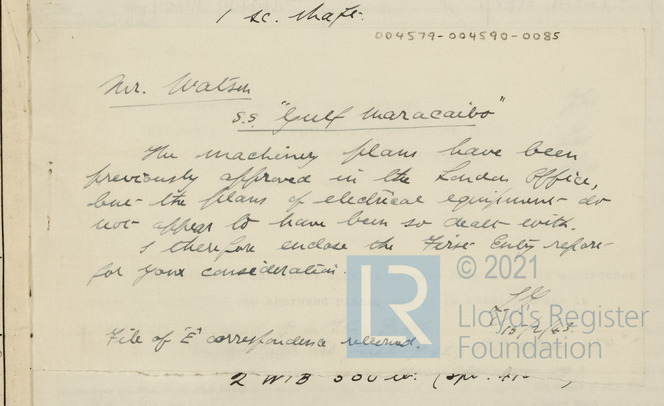 1 sc. shaft.
004579-004590-0085
Mr. Watson
S.S. "Gulf Maracaibo"
The machinery plans have been
previously approved in the London Office,
but the plans of electrical equipment do
not appear to have been so dealt with.
I therefore enclose the First Entry report
for your consideration.
© 2021
LR
Lloyd's Register
Foundation
15/2/45.
File of 'E' correspondence returned.
2 WTB 500 lb.